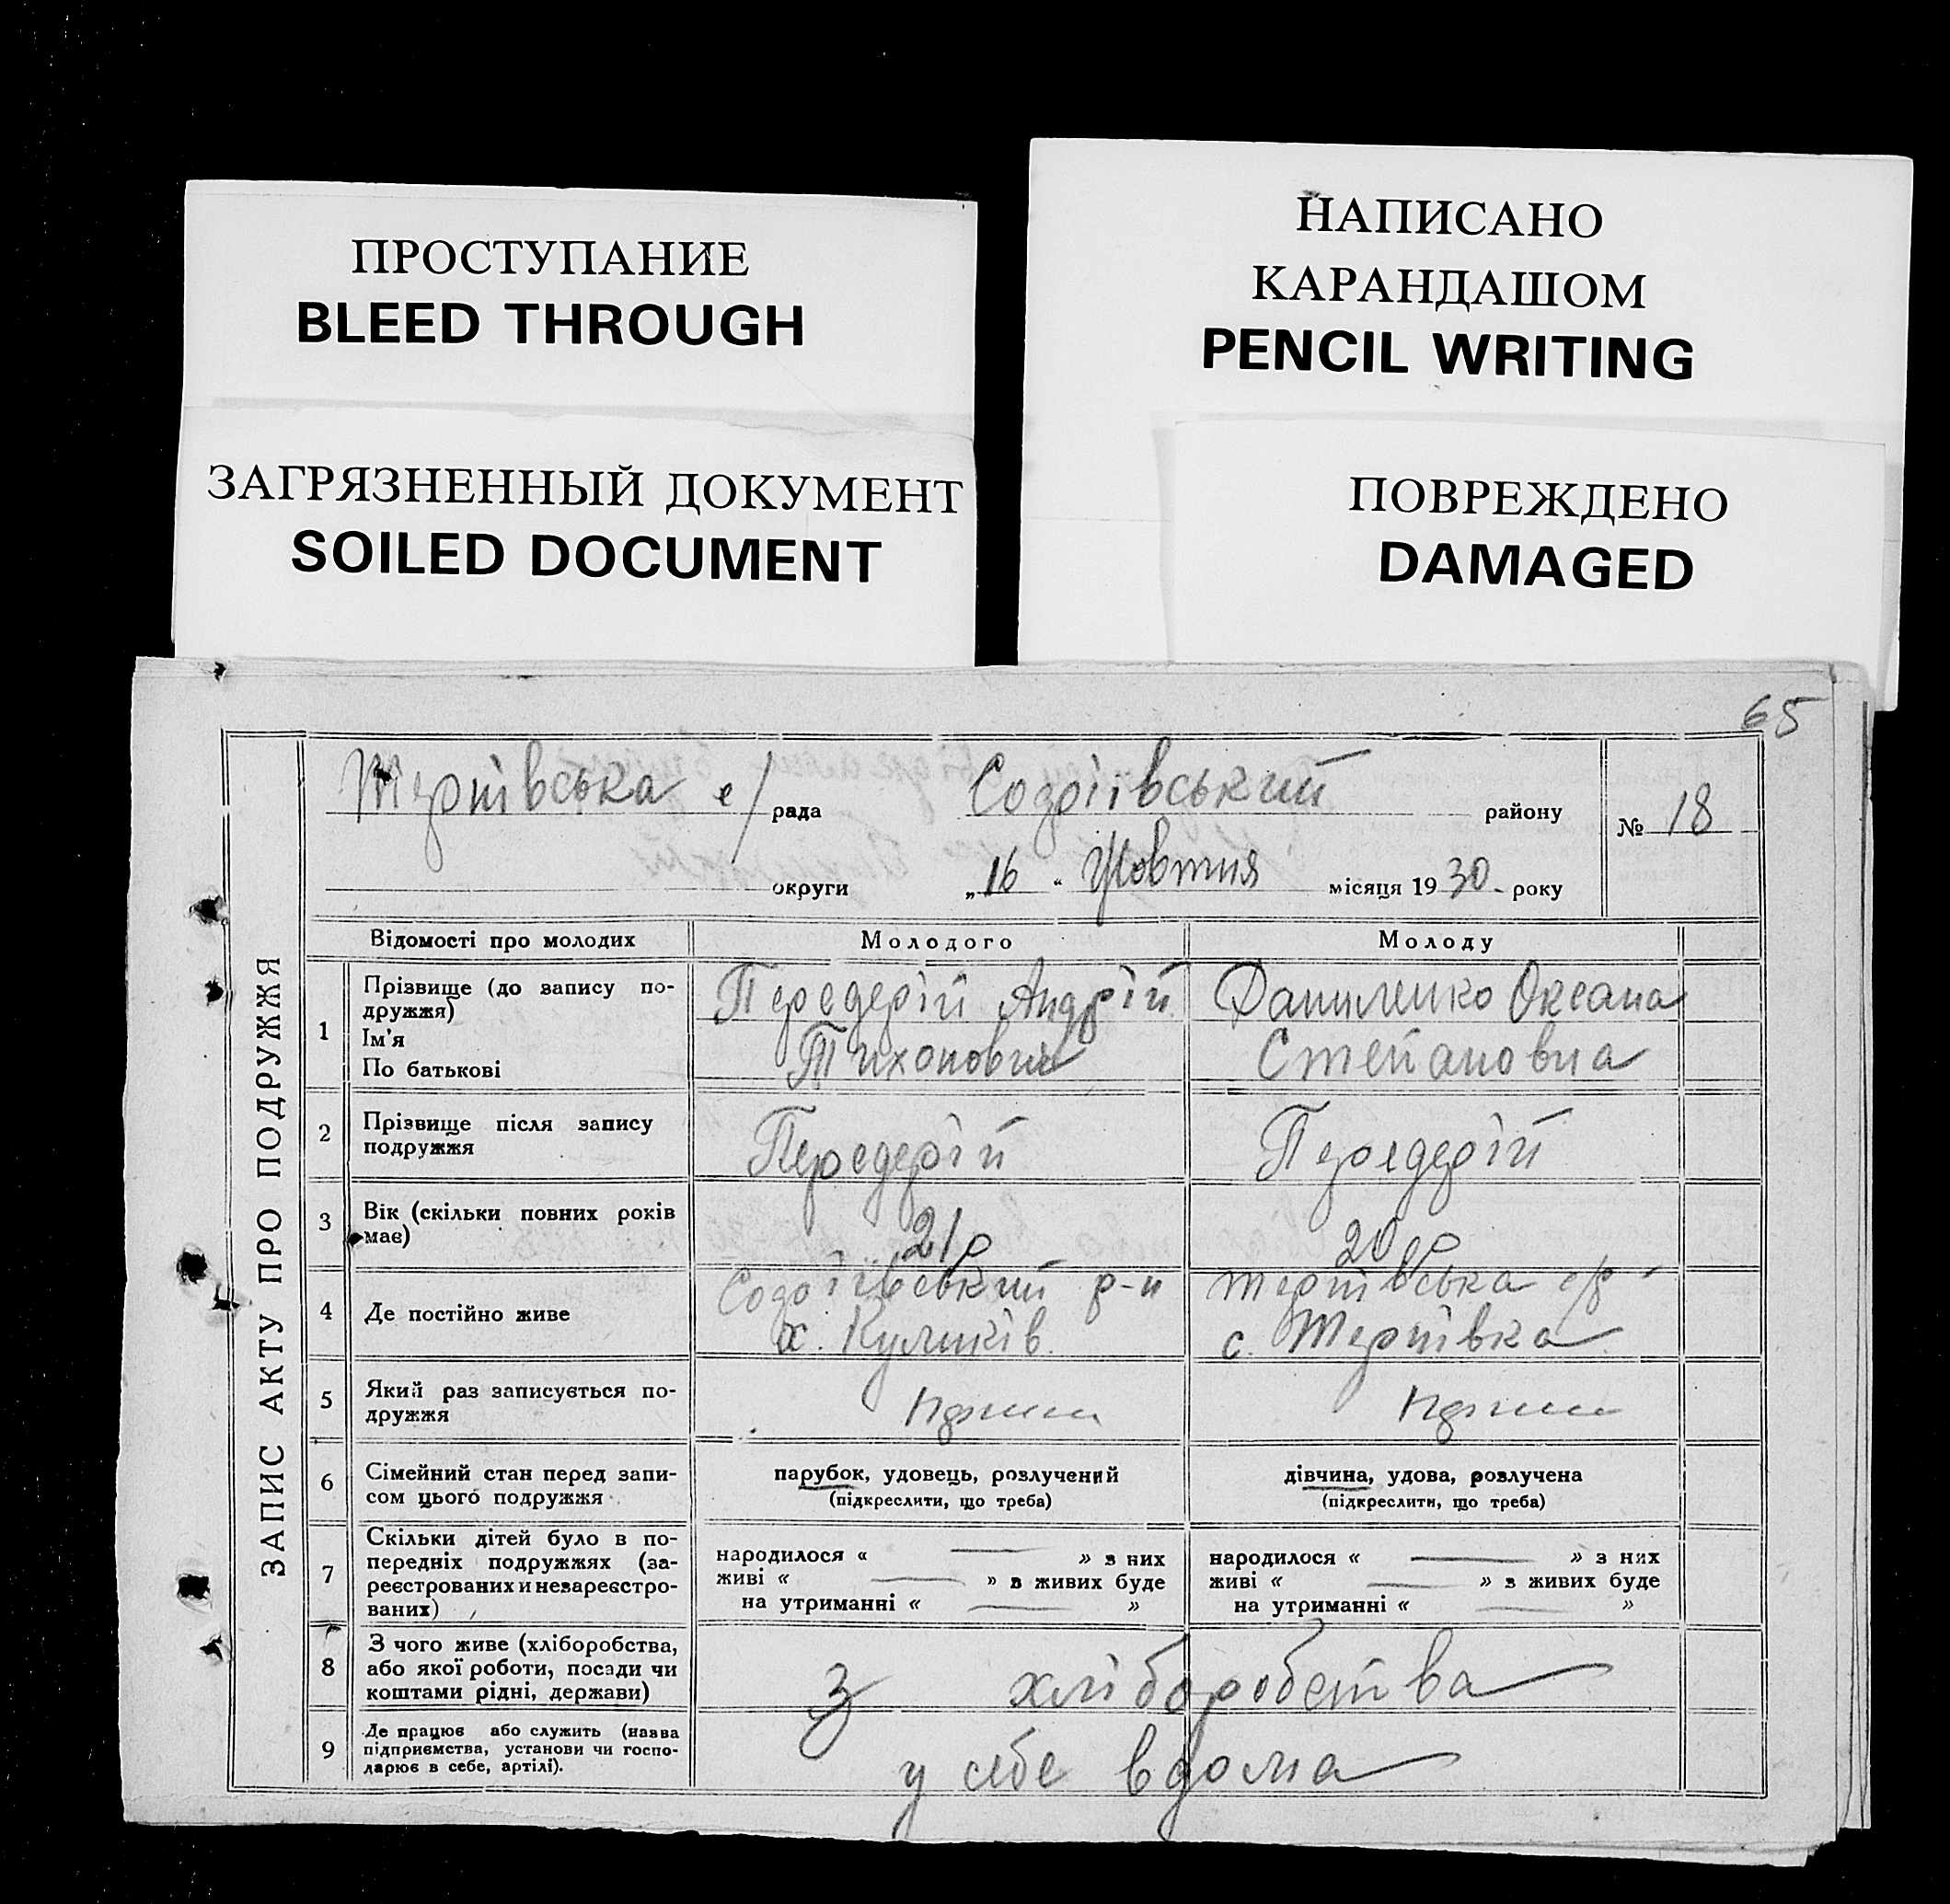 ПРОСТУПАНИЕ
BLEED THROUGH
ЗАГРЯЗНЕННЫЙ ДОКУМЕНТ
SOILED DOCUMENT
НАПИСАНО
КАРАНДАШОМ
PENCIL WRITING
ПОВРЕЖДЕНО
DAMAGED
65
ЗАПИС АКТУ ПРО ПОДРУЖЖЯ
Тернівська с/рада районy № 18
округи „16“ Жовтня місяця 1930 року
Відомості про молодих Молодого Молоду
1 Прізвище (до запису по-
дружжя)
Ім'я
По батькові
Передерій Андрій
Тихонович
Даниленко Оксана
Степановна
2 Прізвище після запису
подружжя
Передерій Передерій
3 Вік (скільки повних років
має)
21р 20 р
4 Де постійно живе
р-н
х. Куликів
Тернівська с/р
с. Тернівка
5 Який раз записується по-
дружжя
6 Сімейний стан перед запи-
сом цього подружжя
парубок, удовець, розлучений
(підкреслити, що треба)
дівчина, удова, розлучена
(підкреслити, що треба)
7 Скільки дітей було в по-
передніх подружжях (за-
реєстрованих и незареєстро-
ваних)
народилося « — » з них
живі « — » з живих буде
на утриманні « — »
народилося « — » з них
живі « — » з живих буде
на утриманні « — »
8 З чого живе (хліборобства,
або якої роботи, посади чи
коштами рідні, держави)
З хліборобства
9 Де працює або служить (назва
підприємства, установи чи госпо-
дарює в себе, артілі).
у себе вдома